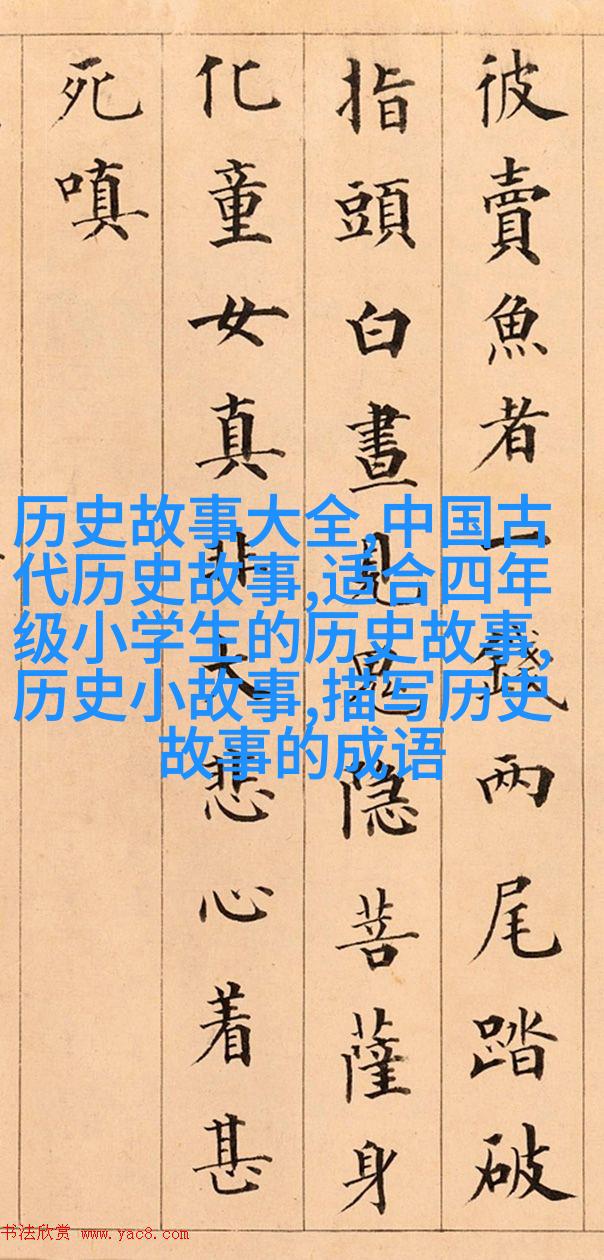 彼賣魚者一錢兩尾踏破
指頭白晝見鬼隱菩薩身
化童女真非大悲心着甚
死嗔
历史故事大全,中国古
代历史故事,适合四年
级小学生的历史故事,
历史小故事,描写历史
故事的成语
书法欣赏 www.yac8.com